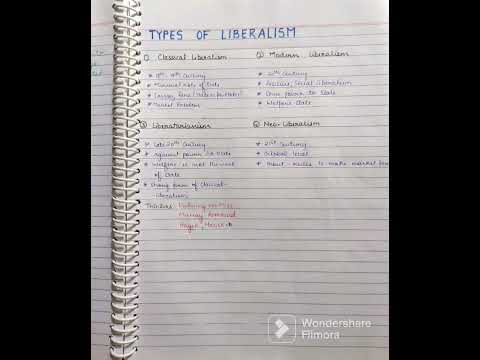 TYPES OF LIBERALISM
① Classical Liberalism
* 18th-19th Century
* Minimal role of State
* Market Freedom
② Modern Liberalism
* 20th Century
* Positive, Social Liberalism
* Give power to State
* Welfare State
③ Libertarianism
* Late 20th Century
* Against power to State
* Welfare is not the work
of State
* Strong form of Classical
Liberalism
Thinkers
Murray
Hayek
④ Neo-Liberalism
* 21st Century
* Global level
* rules to make market free
Wondershare
Filmora